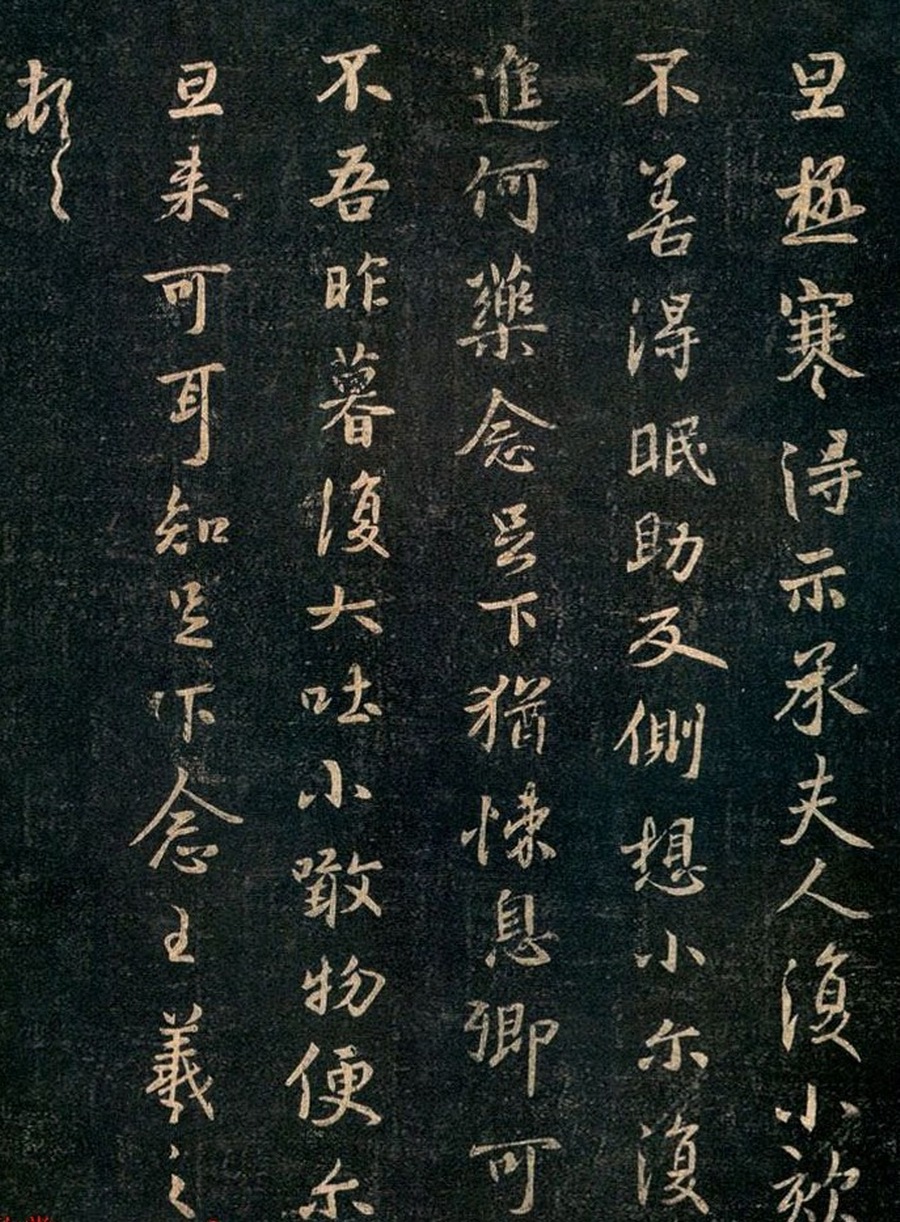 旦極寒得示承夫人復小欬
不善得眠助反側想小尔復
進何藥念足下猶悚息卿可
不吾昨暮復大吐小噉物便尔
旦来可耳知足下念王羲之
頓〻